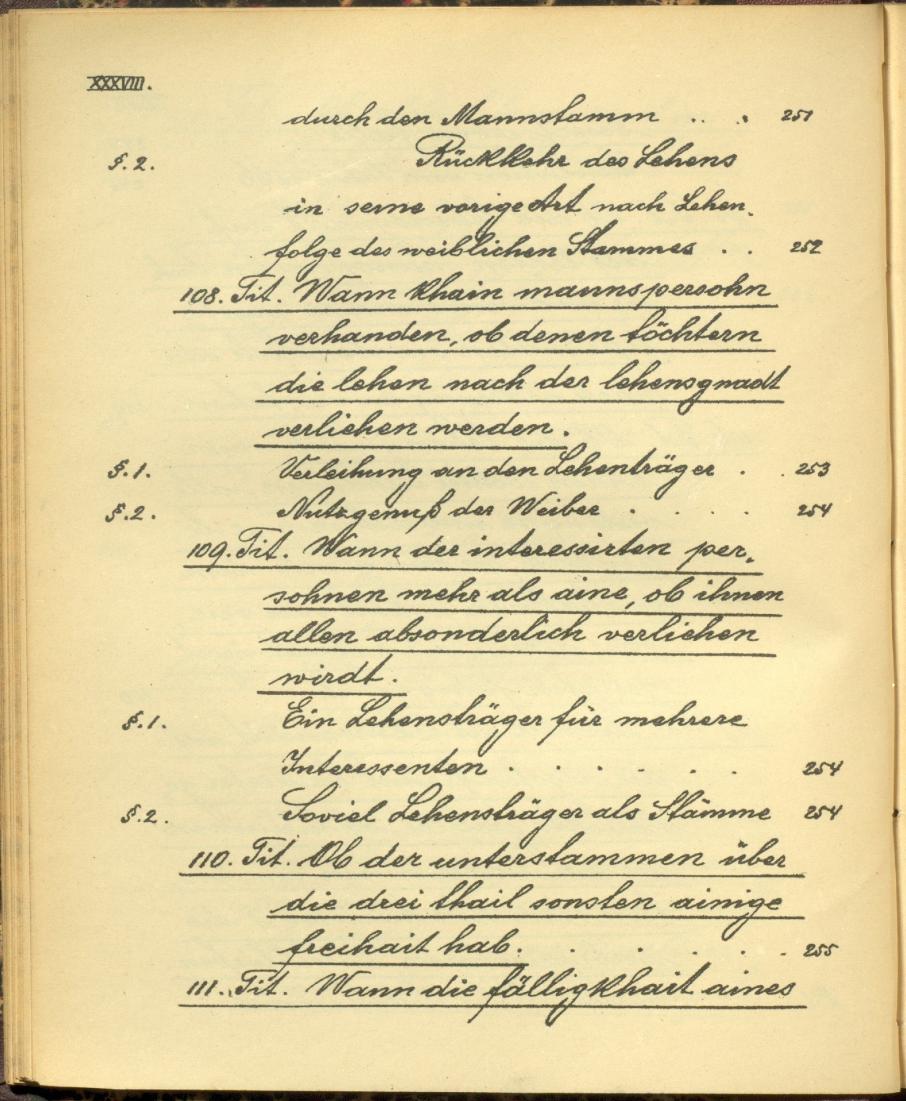 XXXVIII.
durch den Mannstamm . . . 251
§. 2. Rückkehr des Lehens
in seine vorige Art nach Lehen-
folge des weiblichen Stammes . . 252
108. Tit. Wann khain mannspersohn
verhanden, ob denen töchtern
die lehen nach der lehensgnadt
verliehen werden.
§. 1. Verleihung an den Lehenträger . . 253
§. 2. Nutzgenuß der Weiber . . . . 254
109. Tit. Wann der interessirten per-
sohnen mehr als aine, ob ihnen
allen absonderlich verliehen
wirdt.
§. 1. Ein Lehensträger für mehrere
Interessenten . . . . . . 254
§. 2. Soviel Lehensträger als Stämme 254
110. Tit. Ob der unterstammen über
die drei thail sonsten ainige
freihait hab. . . . . . 255
111. Tit. Wann die fälligkhait aines